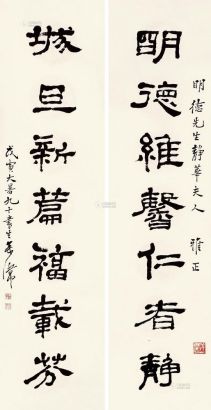 明德維馨仁者靜
明德先生静華夫人 雅正
城旦新篇福載芬
戊寅大暑九十書生